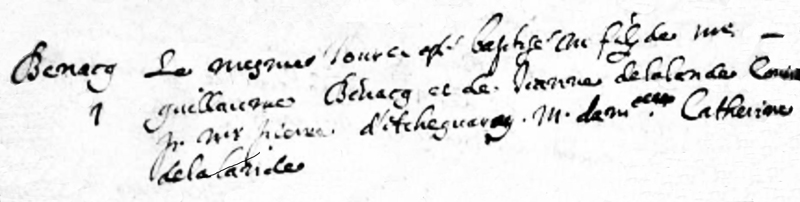 Benacq Le mesme jour est baptisé un filz de me
1 guillaume Benacq et de Jeanne delalande
p. mr pierre d'etchegaray . M. dam.elle Catherine
delalande